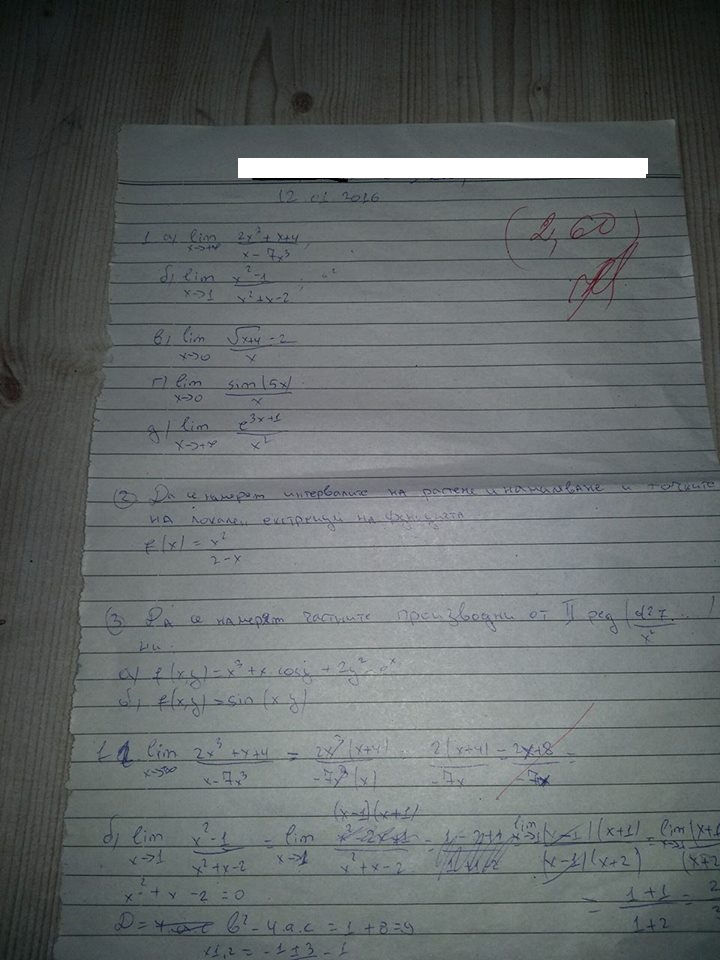 12 01 2016
(2,60)
1 а) lim x→+∞ (2x³+x+4)/(x-7x³),
б) lim x→1 (x²-1)/(x²+x-2);
в) lim x→0 (√x+4 -2)/x
г) lim x→0 sin(5x)/x
д) lim x→+∞ e^(3x+1)/x²
② Да се намерят интервалите на растене и намаляване и точките
на локален екстремум на функцията
f(x) = x²/(2-x)
③ Да се намерят частните производни от II ред
а) f(x,y)=x³+x cosy+2y²
б) f(x,y)=sin(xy)
1 lim x→∞ (2x³+x+4)/(x-7x³) = 2x³(x+4)/-7x³(x) = 2(x+4)/-7x = (2x+8)/-7x =
(x-1)(x+1)
б) lim x→1 (x²-1)/(x²+x-2) = lim x→1 /(x²+x-2) = lim x→1 (x-1)(x+1)/(x-1)(x+2) = lim x→1 (x+1)/(x+2)
x²+x-2=0 = (1+1)/(1+2) = 2
D= b²-4.a.c = 1+8=9
x1,2 = -1±3 - 1